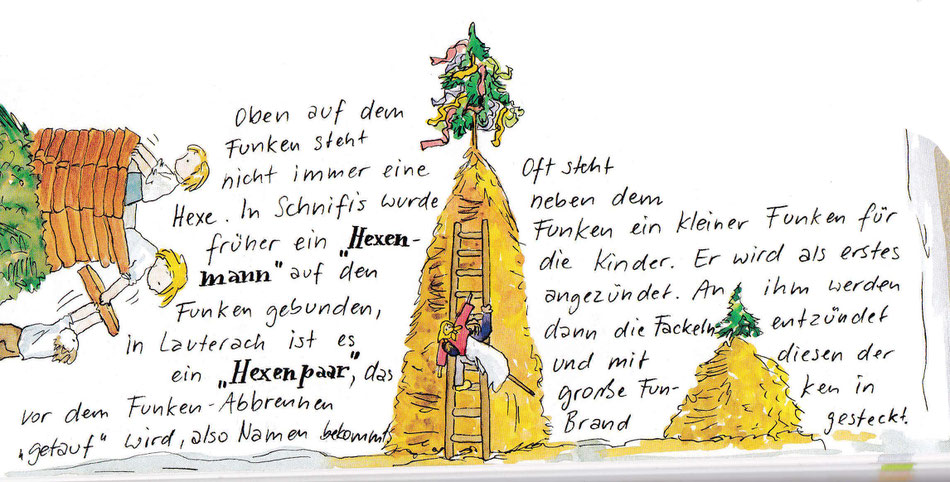 Oben auf dem
Funken steht
nicht immer eine
Hexe. In Schnifis wurde
früher ein "Hexen-
mann" auf den
Funken gebunden,
in Lauterach ist es
ein "Hexenpaar", das
vor dem Funken-Abbrennen
"getauf" wird, also Namen bekommt.
Oft steht
neben dem
Funken ein kleiner Funken für
die Kinder. Er wird als erstes
angezündet. An ihm werden
dann die Fackeln entzündet
und mit diesen der
große Fun- ken in
Brand gesteckt.